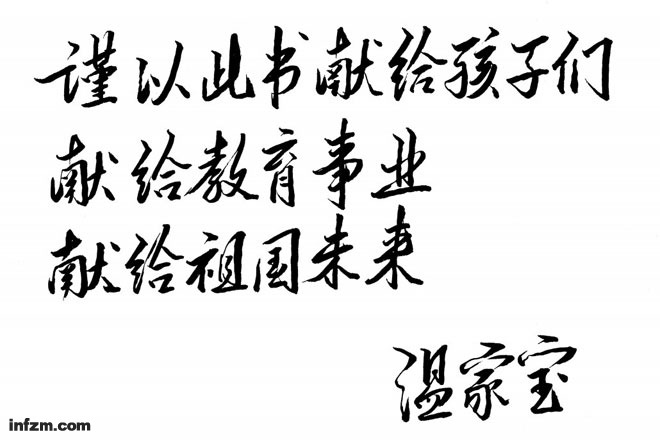 谨以此书献给孩子们
献给教育事业
献给祖国未来
温家宝
infzm.com